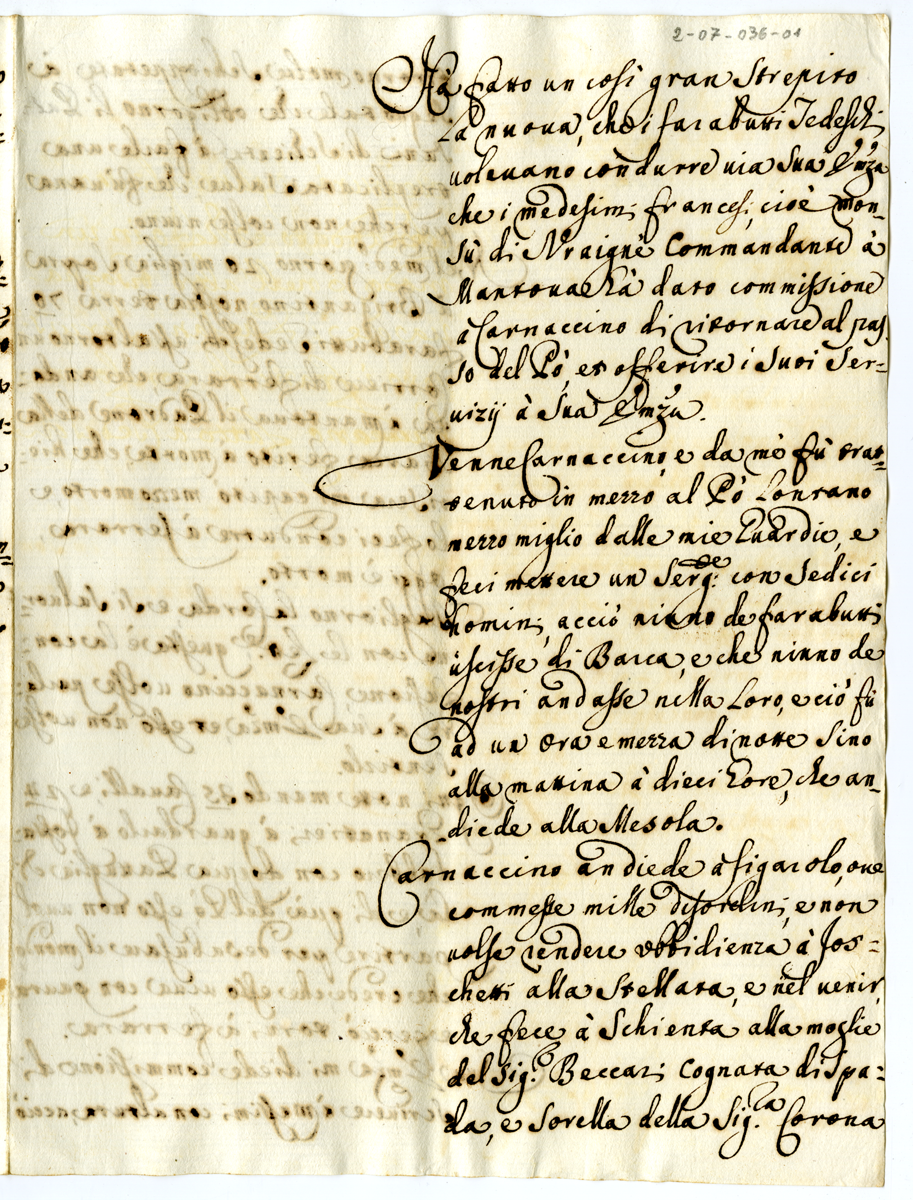 2-07-036-01
Hà fatto un così gran Strepito
La nuova, che i farabutti Tedeschi
volevano condurre via Sua Em.za
che i medesimi francesi, cioè Mon-
sù di Commandante à
Mantova hà dato commissione
à Carnaccino di ritornare al pas-
so del Pò, et offerire i Suoi Ser-
vizij à Sua Em.za.
Venne Carnaccino, e da mè fù trat-
tenuto in mezzo al Pò Lontano
mezzo miglio dalle mie Guardie, e
feci mettere un Serg.te con Sedici
homini, acciò niuno de farabutti
uscisse di Barca, e che niuno de
nostri andasse nella Loro, e ciò fù
ad un Ora e mezza di notte Sino
alla mattina à dieci hore, che an-
diede alla Mesola.
Carnaccino andiede à figarolo, ove
commesse mille disordini, e non
volse rendere obbidienza à Fos-
chetti alla Stellata, e nel venir,
che fece à Schienta alla moglie
del Sig.r Beccari Cognata di Spa-
da, e Sorella della Sig.ra Corona